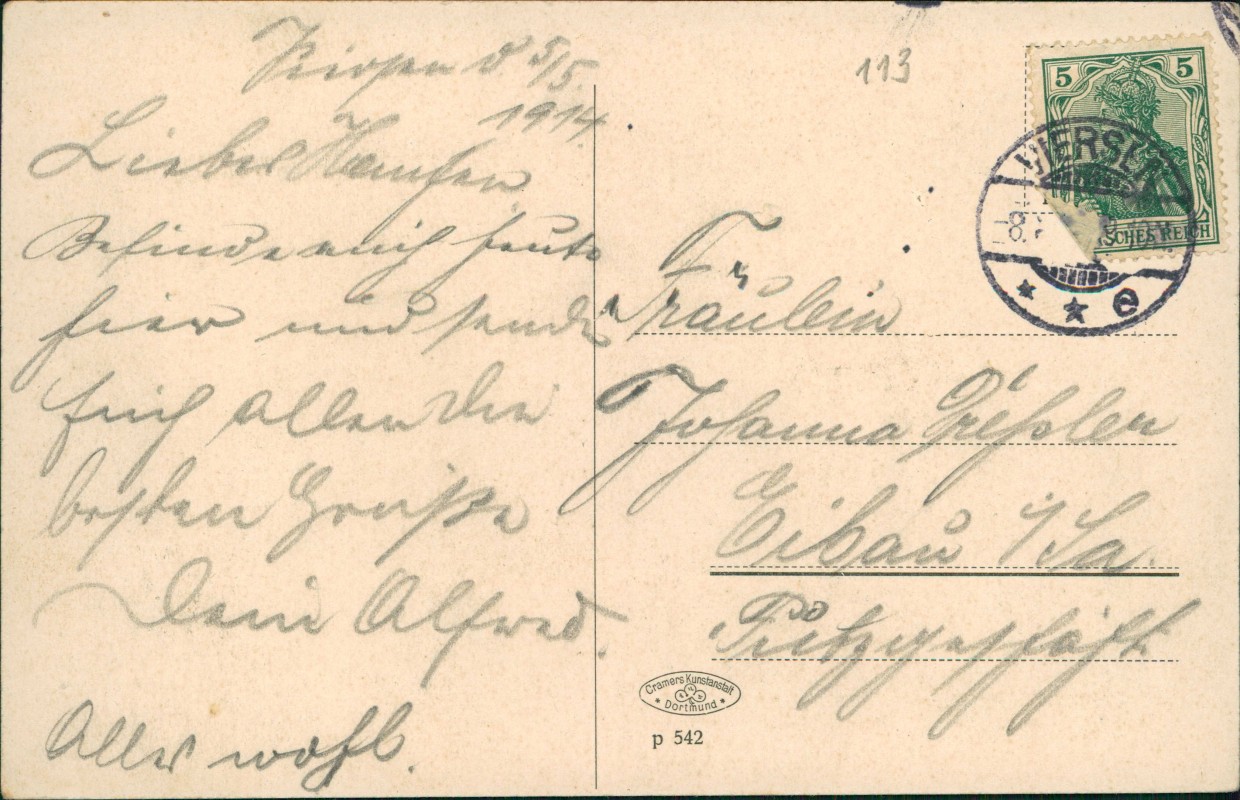 Viersen d 5/5.
1914.
Liebes Hannchen
Befinde mich heute
hier und sende
Euch allen die
besten Grüße
Dein Alfred.
Alles wohl.
113
5 5
VIERSEN
8.
SCHES REICH
* * e
Fräulein
Johanna
Eibau i/Sa.
Putzgeschäft
Cramers Kunstanstalt
* Dortmund *
p 542